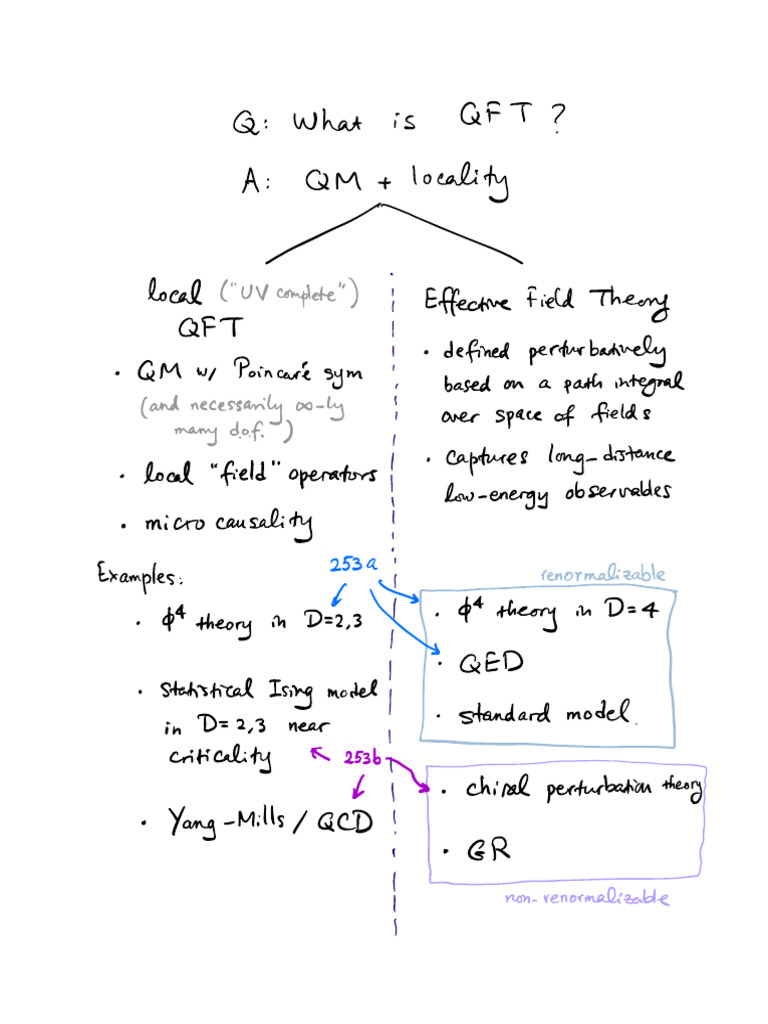 Q: What is QFT?
A: QM + locality
local ("UV complete")
QFT
• QM w/ Poincaré sym
(and necessarily ∞-ly
many d.o.f.")
• local "field" operators
• micro causality
Effective Field Theory
• defined perturbatively
based on a path integral
over space of fields
• captures long-distance
low-energy observables
Examples:
253a
• ϕ⁴ theory in D=2,3
• Statistical Ising model
in D=2,3 near
criticality
253b
• Yang-Mills / QCD
renormalizable
• ϕ⁴ theory in D=4
• QED
• standard model.
• chiral perturbation theory
• GR
non-renormalizable